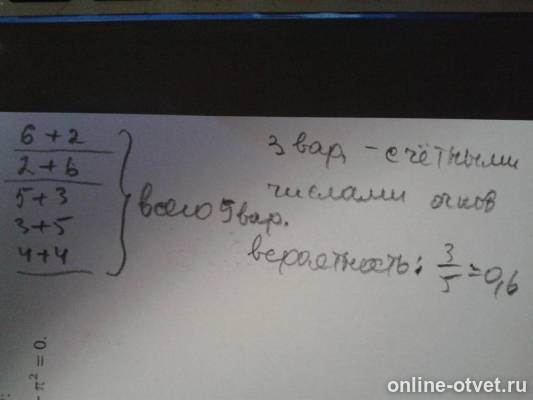 6 + 2
2 + 6
5 + 3
3 + 5
4 + 4
всего 5 вар.
3 вар - с чётными
числами очков
вероятность: 3/5 = 0,6
- π² = 0.
online-otvet.ru